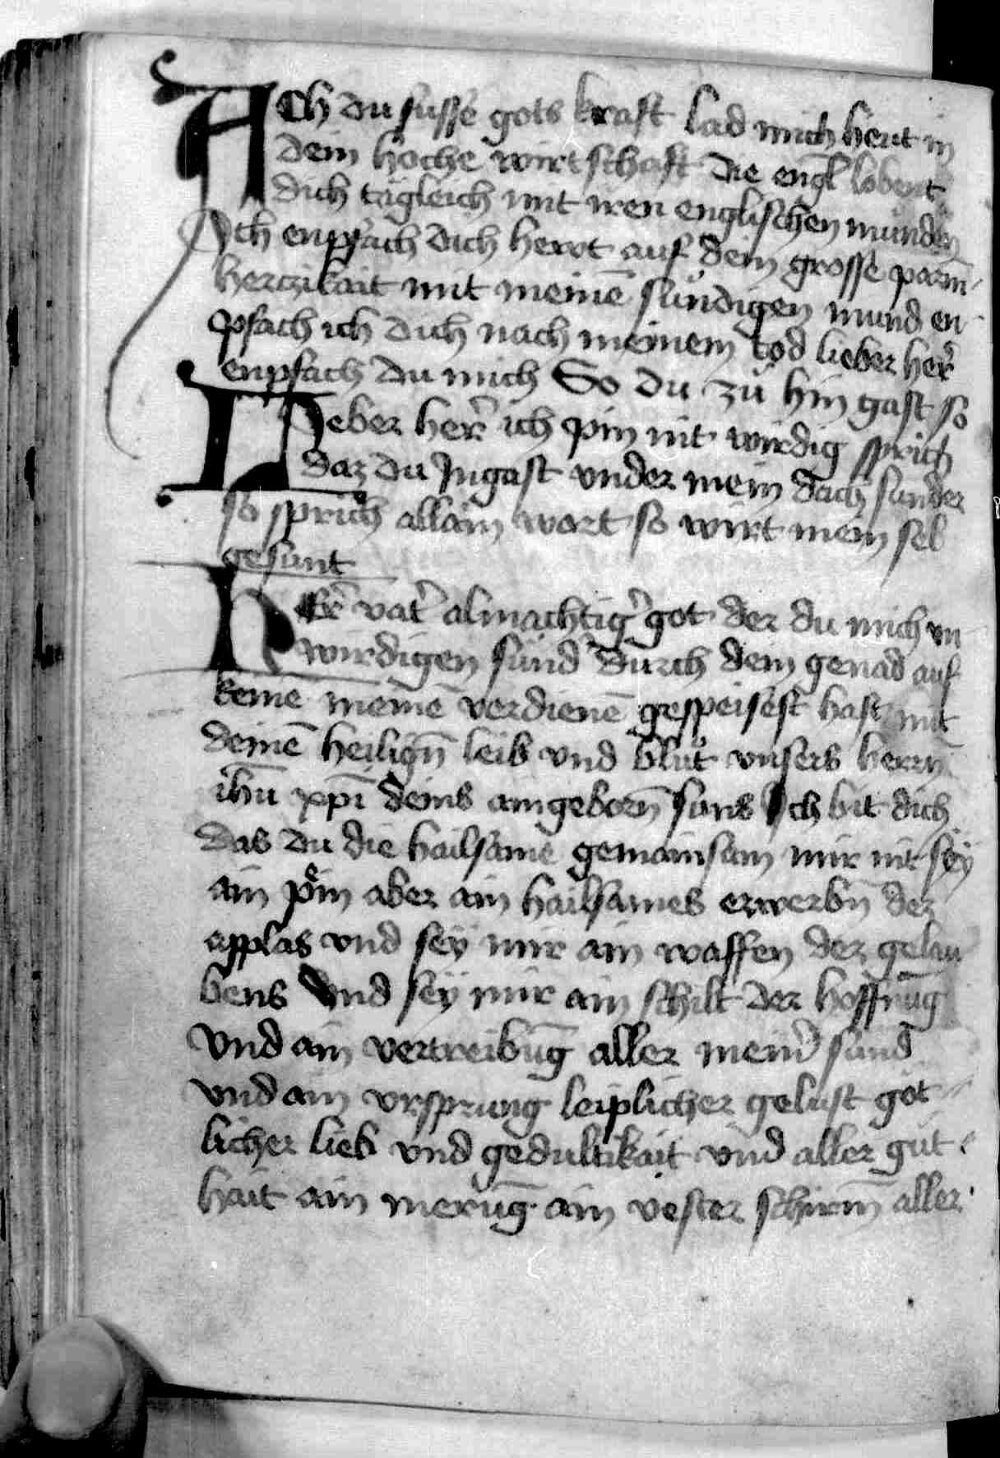 Ach du süsse gots kraft lad mich hewt in
dein hoche wirtschaft die engl̄ lobent
dich tägleich mit iren englischen munden
Ich enpfach dich hewt auf dein grosse parm¬
herczikait mit meinē sündigen mund en
pfach ich dich nach meinem tod lieber her̄
enpfach du mich So du zů hin gast so
Lieber her̄ ich pin nit wirdig sprich
daz du Ingast vnder mein dach sunder
so sprich allain wort so wirt mein sel
gesunt
Her̄ vat̄ almächtiḡ got der du mich vn
wirdigen sünd̄ durch dein genad auf
keine meinē verdienē gespeisest hast mit
deinē heilign̄ leib vnd blůt vnsers herrn̄
ihū xp̄i deins aingeborn̄ suns Ich bit dich
das du die hailsame gemainsam mir nit sey
ain pein aber ain hailsames erwerbn̄ der
applas vnd sey mir ain waffen dez gelau
bens vnd sey mir ain schilt der hoffnūg
Vnd ain vertreibūg aller mein̄ sünd
vnd ain vrsprung leiplicher gelust göt
licher lieb vnd gedultikait vnd aller güt
hait ain merūg ain vester schirm̄ aller